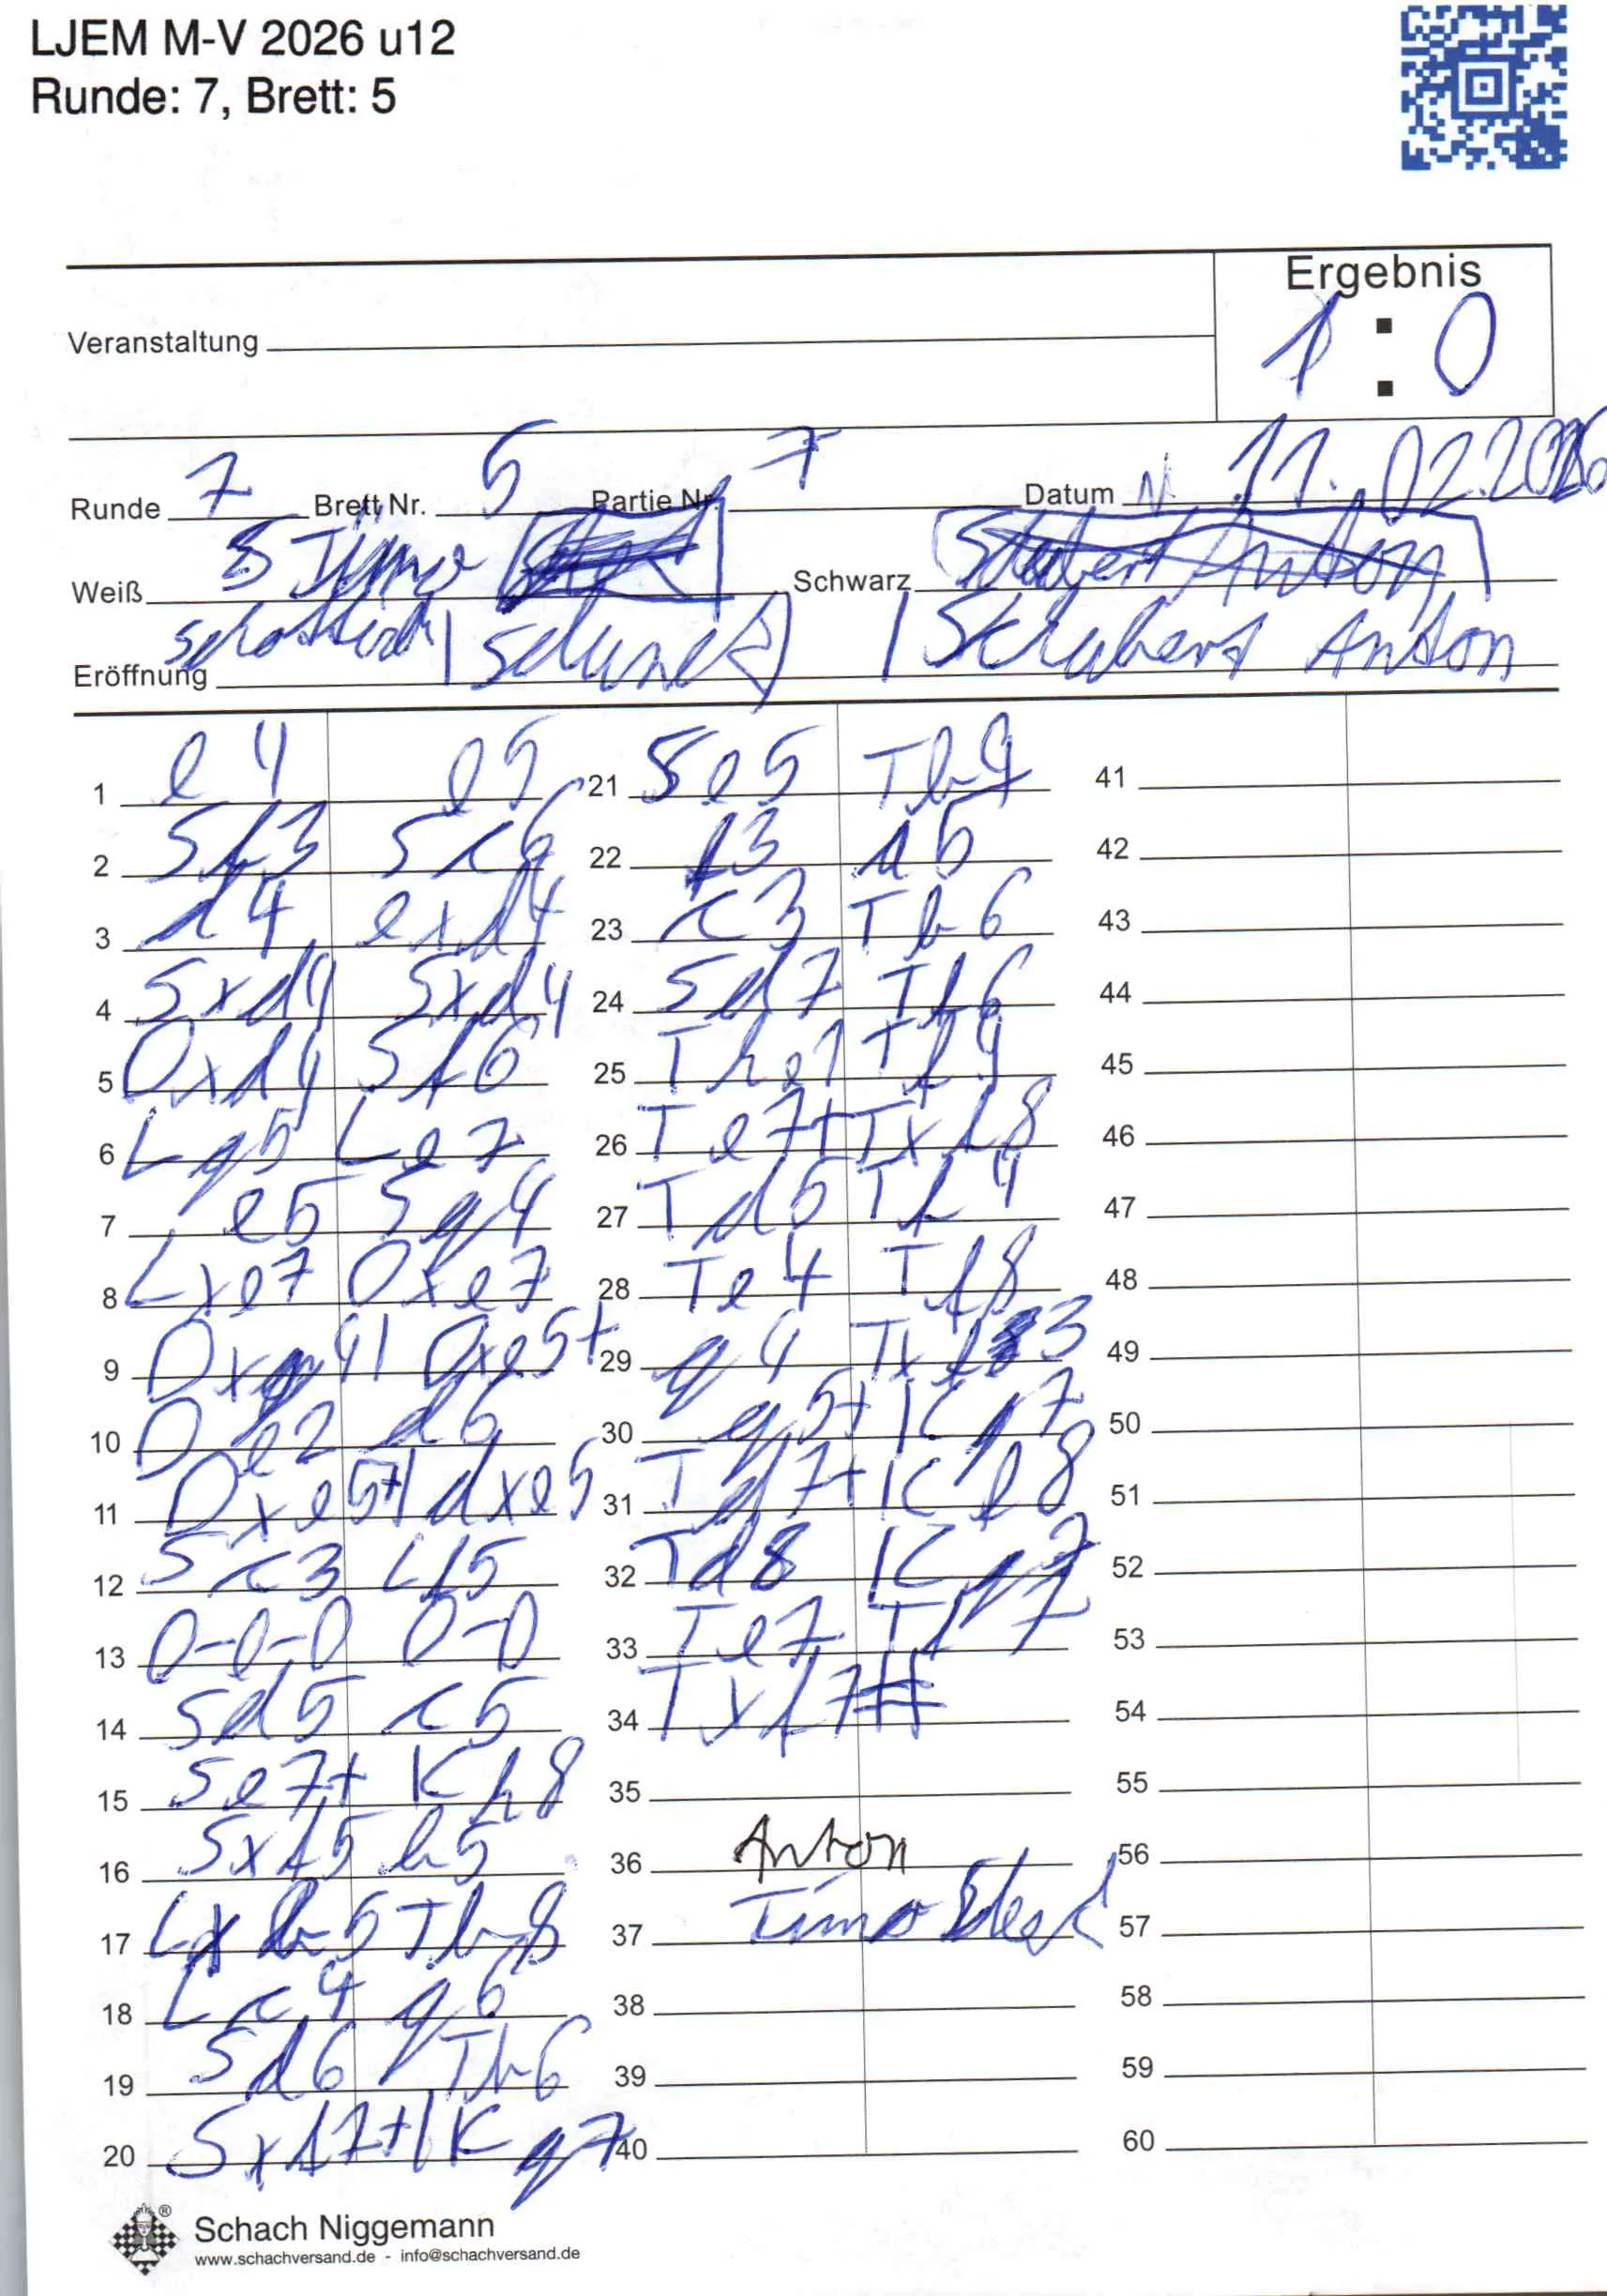 LJEM M-V 2026 u12
Runde: 7, Brett: 5
Ergebnis
1 : 0
Veranstaltung
Runde 7 Brett Nr. 5 Partie Nr. 7 Datum 11.02.2026
Weiß Schwarz
Eröffnung Schubert Anton
1 e4 e5
2 Sf3 Sc6
3 d4 exd4
4 Sxd4 Sxd4
5 Dxd4 Sf6
6 Lg5 Le7
7 e5 Sg4
8 Lxe7 Dxe7
9 Dxg4 Dxe5+
10 De2 d6
11 Dxe5+ dxe5
12 Sc3 Lf5
13 0-0-0 0-0
14 Sd5 c5
15 Se7+ Kh8
16 Sxf5 b5
17 Lxb5 Tb8
18 Lc4 g6
19 Sd6 Tb6
20 Sxf7+ Kg7
21 Se5 Tb4
22 f3 a5
23 c3 Tb6
24 Sd7 Tf6
25 The1 Tf4
26 Te7+ Txf8
27 Td5 Tf4
28 Te4 Tf8
29 g4 Txf3
30 g5+ Kf7
31 Td7+ Ke8
32 Td8 Kg7
33 Te7 Tf7
34 Txf7#
35
36 Anton
37 Timo
38
39
40
41
42
43
44
45
46
47
48
49
50
51
52
53
54
55
56
57
58
59
60
Schach Niggemann
www.schachversand.de - info@schachversand.de